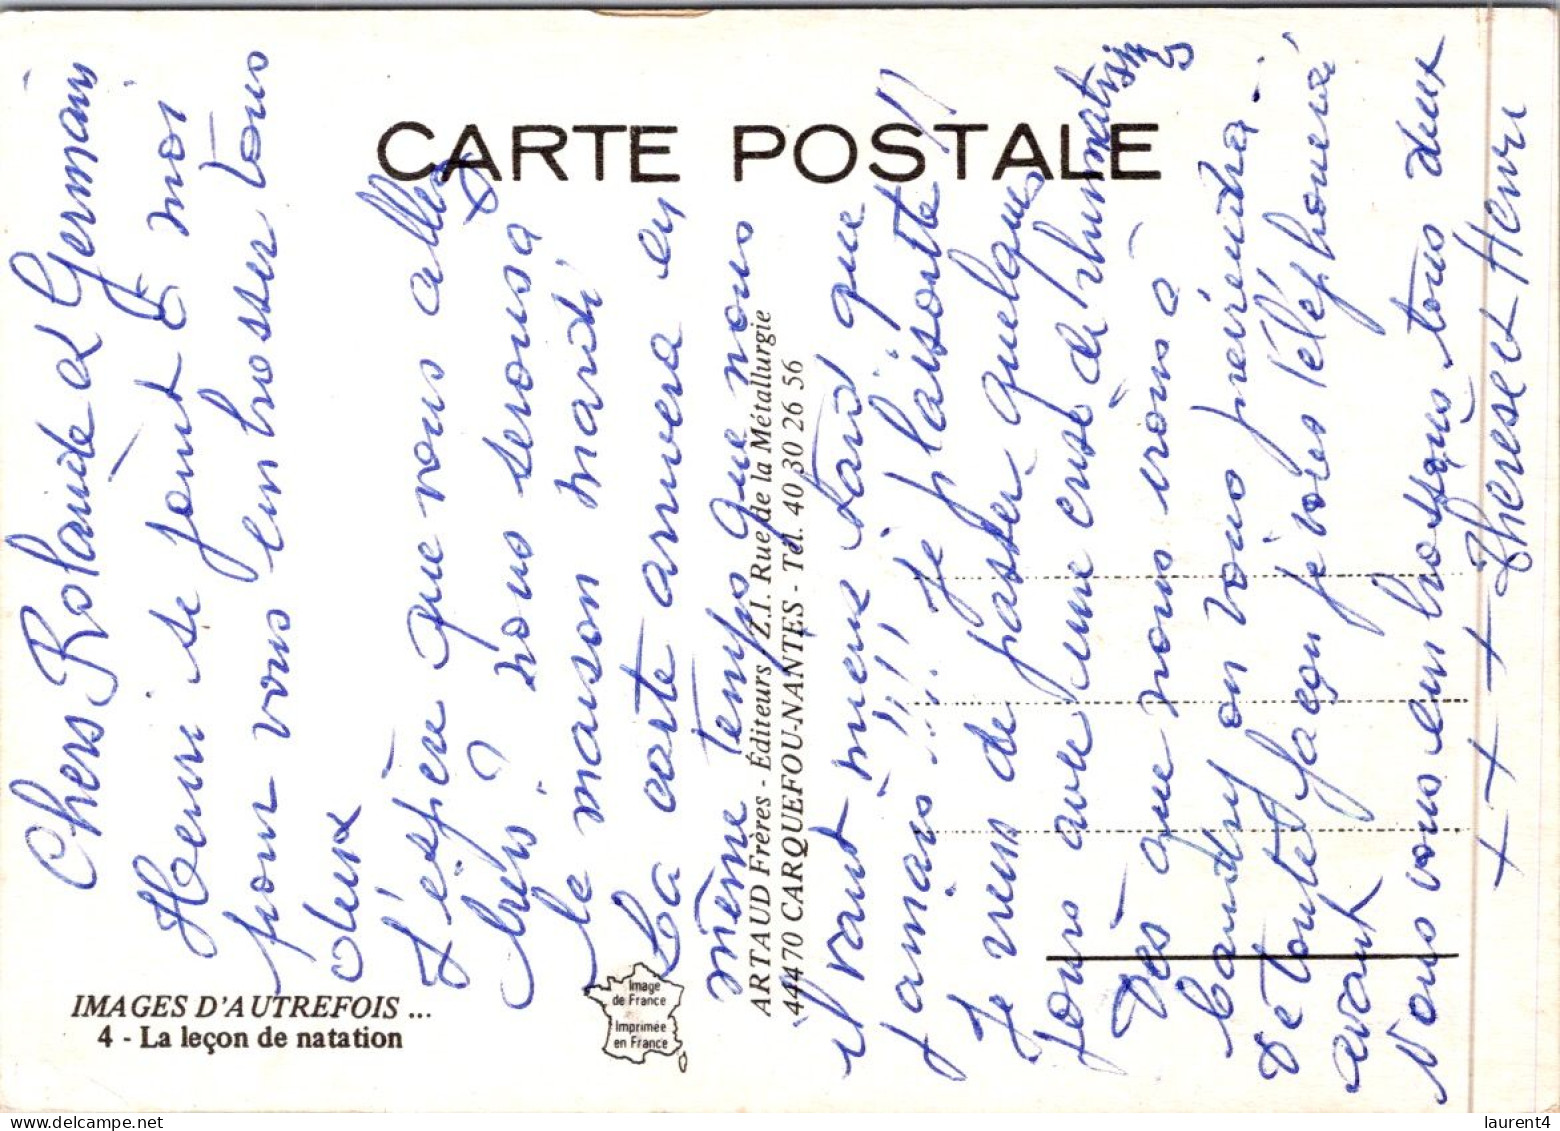 CARTE POSTALE
Chers Rolande et Germain
Henri se joint à moi
pour vous embrasser tous
deux
J'espère que nous allez
bien ? nous serons à
la maison mardi
La carte arrivera en
même temps que nous
il vaut mieux tard que
jamais !!!! Je plaisante !!
Je viens de passer quelques
jours avec une crise de rhumatismes
Dès que nous irons à
on vous préviendra.
De toute façon je vous téléphonerai
avant
Nous vous embrassons tous deux
Therese et Henri
+ + + +
ARTAUD Frères - Éditeurs Z.I. Rue de la Métallurgie
44470 CARQUEFOU-NANTES - Tél. 40 30 26 56
Image
de France
Imprimée
en France
IMAGES D'AUTREFOIS ...
4 - La leçon de natation
laurent4